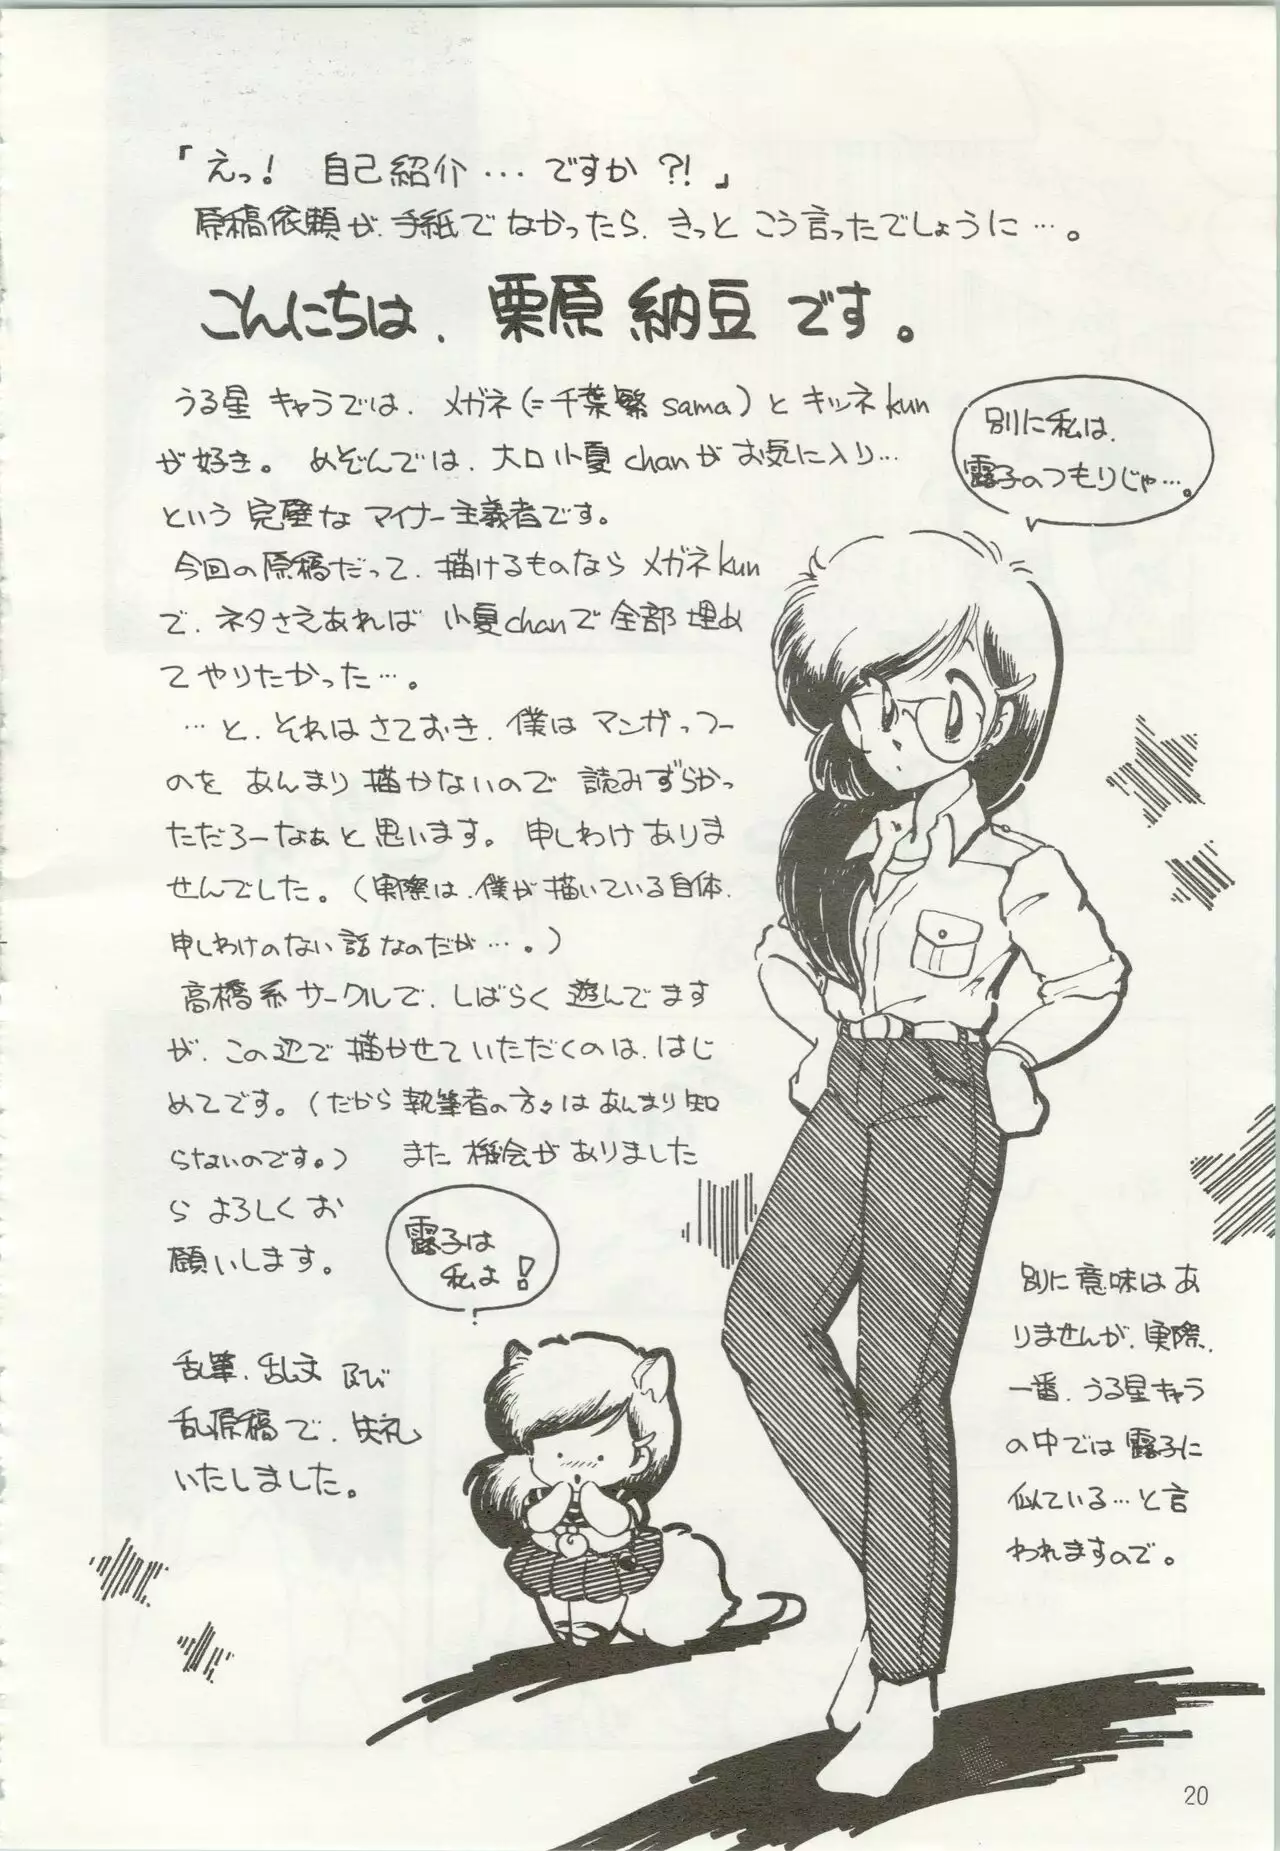 「えっ! 自己紹介…ですか?!」
原稿依頼が、手紙でなかったら、きっと こう言ったでしょうに…。
こんにちは、栗原 納豆 です。
うる星 キャラでは、メガネ(=千葉繁 sama)と キツネkun
が好き。 めぞんでは、大口小夏chanが お気に入り…
という 完璧な マイナー主義者です。
今回の原稿だって、描けるものなら メガネkun
で、ネタさえあれば 小夏chanで 全部 埋め
てやりたかった…。
…と、それはさておき、僕は マンガっつー
のを あんまり 描かないので 読みずらかっ
ただろーなぁと 思います。 申しわけ ありま
せんでした。(実際は、僕が描いている自体、
申しわけのない 話 なのだが…。)
高橋系 サークルで、しばらく 遊んでます
が、この辺で 描かせて いただくのは、はじ
めてです。(だから 執筆者の方々は あんまり知
らないのです。) また 機会が ありました
ら よろしく お
願いします。
乱筆、乱文 及び
乱原稿で、失礼
いたしました。
別に私は、
露子のつもりじゃ…。
露子は
私よ!
別に 意味は あ
りませんが、実際、
一番、うる星キャラ
の中では 露子に
似ている…と 言
われますので。
20